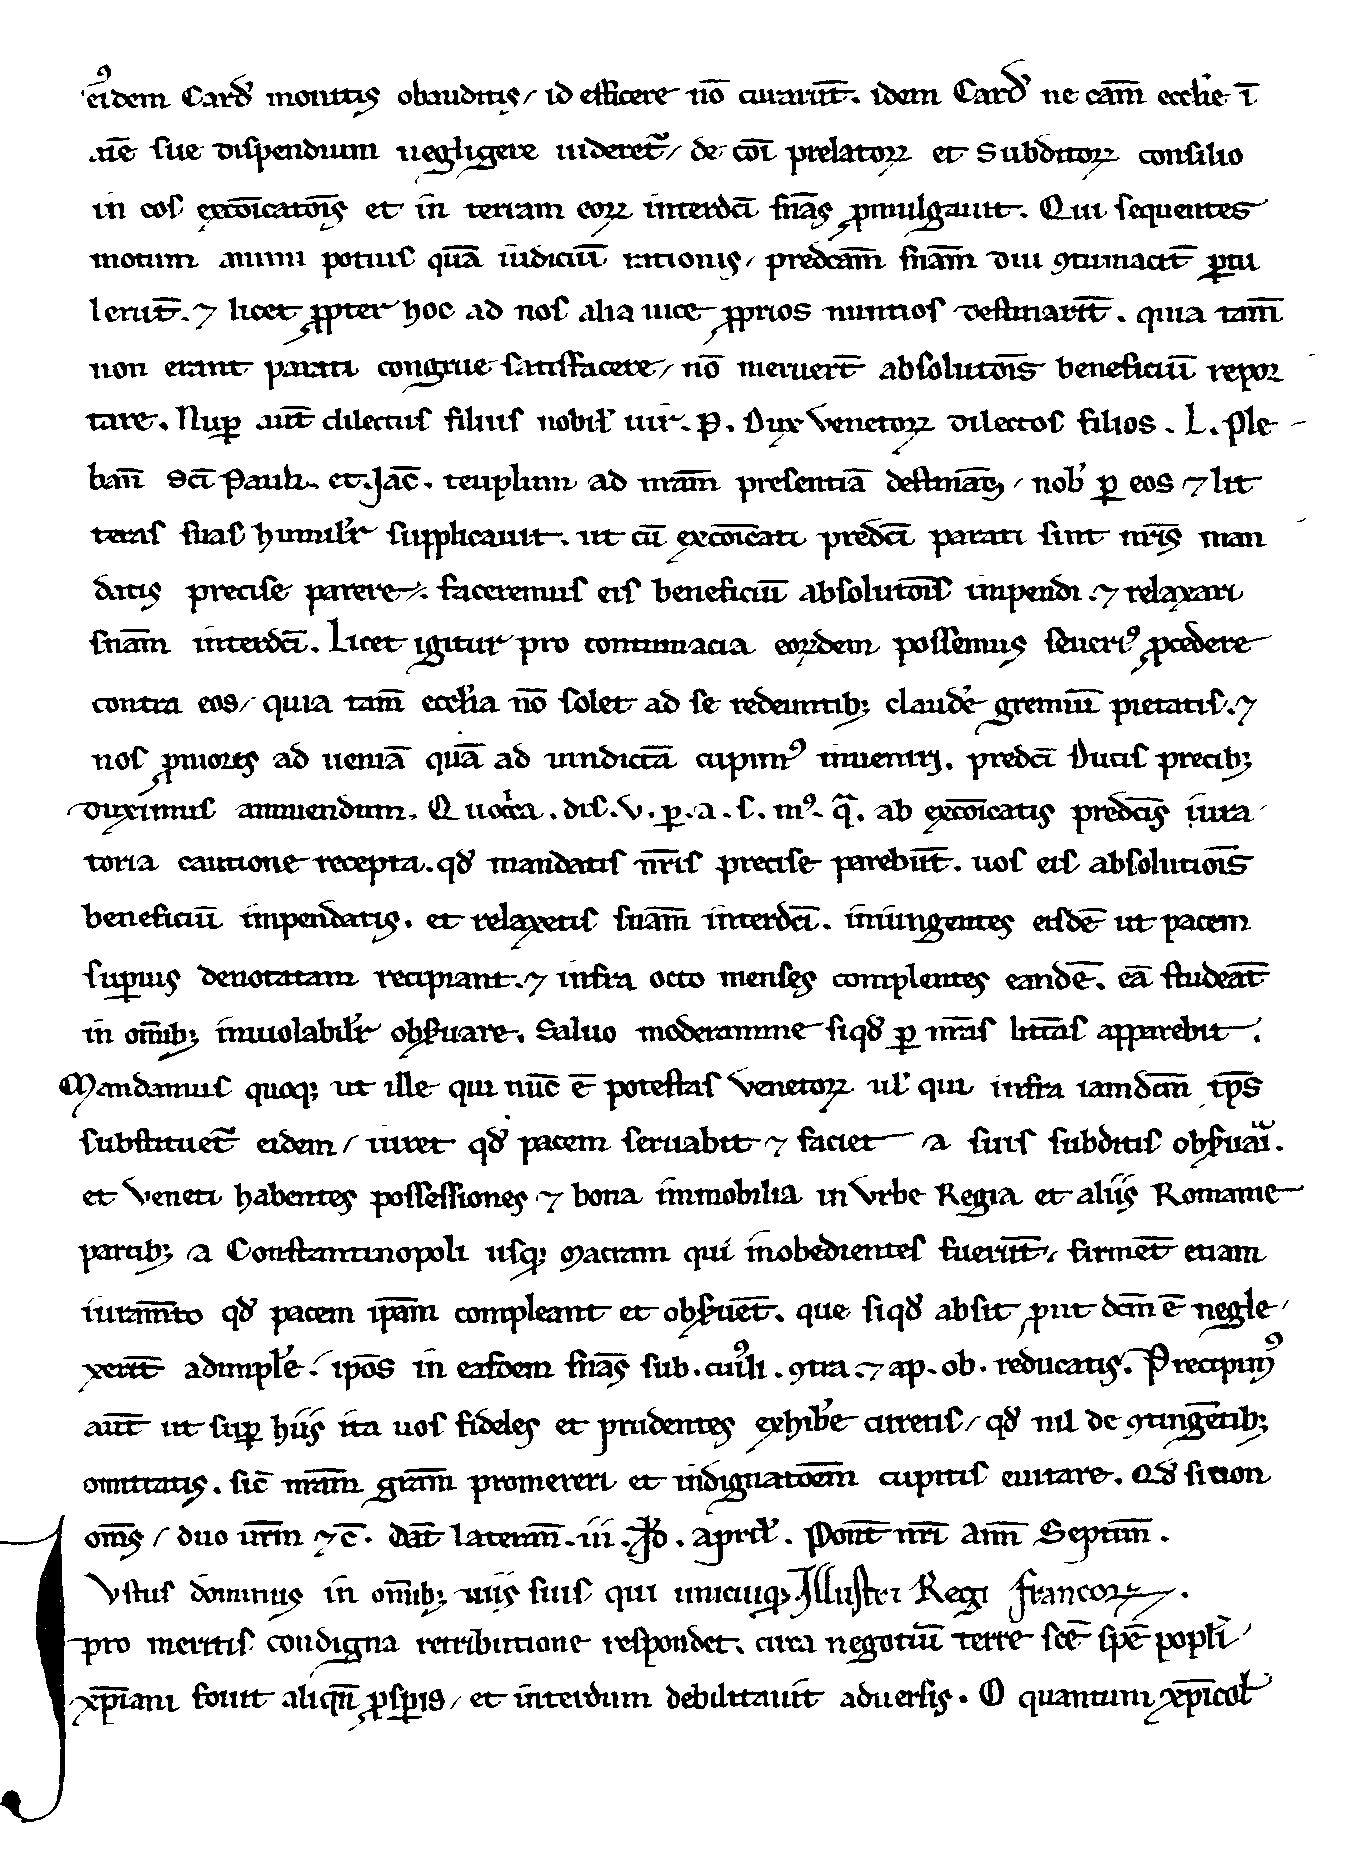 eiꝰdem Carđ monitis obauditis/ id efficere nō curarūt. idem Carđ ne cām eccłie ī
sue dispendium negligere uideret᷑/ de cōi prelatoꝝ et Subditoꝝ consilio
in eos excōicatōis et in terram eoꝝ interdc̄i sn̄as ꝓmulgauit. Qui sequentes
motum animi potius quā iudiciū rationis/ predcām sn̄am diu ꝯtumacit̄ ꝑtu
lerūt. ⁊ licet ꝓpter hoc ad nos alia uice ꝓprios nuntios destinarīt. quia tam̄
non erant parati congrue satisfacere/ nō meruert̄ absolutōis beneficiū repor
tare. Nuꝑ aut̄ dilectus filius nobił uir. P. Dux Venetoꝝ dilectos filios. L. Ple-
ban̄ Sc̄i Pauli. et Jac̄. templum ad nr̄am presentiā destinās/ nob̓ ꝑ eos ⁊ lit
teras suas humilr̓ supplicauit. ut cū excōicati predc̄i parati sint nr̄is man
datis precise parere. faceremus eis beneficiū absolutōis impendi. ⁊ relaxari
sn̄am interdc̄i. Licet igitur pro contumacia eoꝝdem possemus seueriꝰ ꝓcedere
contra eos/ quia tam̄ eccłia nō solet ad se redeuntibꝫ claude̓ gremiū pietatis. ⁊
nos ꝓniores ad ueniā quā ad uindictā cupimꝰ inueniri. predc̄i Ducis precibꝫ
duximus annuendum. Quocr̓ca. dis. V. ꝑ. a. s. mꝰ. q̄. ab excōicatis predc̄is iura
toria cautione recepta. qđ mandatis nr̄is precise parebūt. uos eis absolutiōis
beneficiū impendatis. et relaxetis sn̄am interdc̄i. iniungentes eisdē ut pacem
suꝑius denotatam recipiant. ⁊ infra octo menses complentes eandē. eā studeāt
in om̄ibꝫ inuiolabilr̓ obẜuare. Saluo moderamine siqđ ꝑ nr̄as litt̄as apparebit.
Mandamus quoqꝫ ut ille qui nūc ē potestas Venetoꝝ ul̓ qui infra iamdcm̄ tp̄s
substituet᷑ eidem/ iuret qđ pacem seruabit ⁊ faciet a suis subditis obẜuaꝛi.
et Veneti habentes possessiones ⁊ bona immobilia in Vrbe Regia et aliis Romanie
partibꝫ a Constantinopoli usqꝫ Macram qui inobedientes fuerūt/ firmēt etiam
iuram̄to qđ pacem ip̄am compleant et obẜuēt. que siqđ absit ꝓut dcm̄ ē negle/
xerīt adimple̓. ip̄os in easdem sn̄as sub. cuiꝰli. ꝯtra. ⁊ ap. ob. reducatis. Precipimꝰ
aut̄ ut suꝑ hiis ita uos fideles et prudentes exhibe̓ curetis/ qđ nil de ꝯtingētibꝫ
omittatis. sic̄ nr̄am gr̄am promereri et indignatōem cupitis euitare. Qđ si non
om̄s/ duo ur̄m ⁊c̄. Dat̄ Lateran̄. iii. Id̓. april̓. Pont̄ nr̄i Ann̄ Septim̄.
Justus dominus in om̄ibꝫ uiis suis qui unicuiqꝫ Illustri Regi francoꝝ.
pro meritis condigna retributione respondet. circa negotiū terre scē spē popłi
xp̄iani fouit aliqn̄ ꝓsꝑis/ et interdum debilitauit aduersis. O quantum xp̄icoł